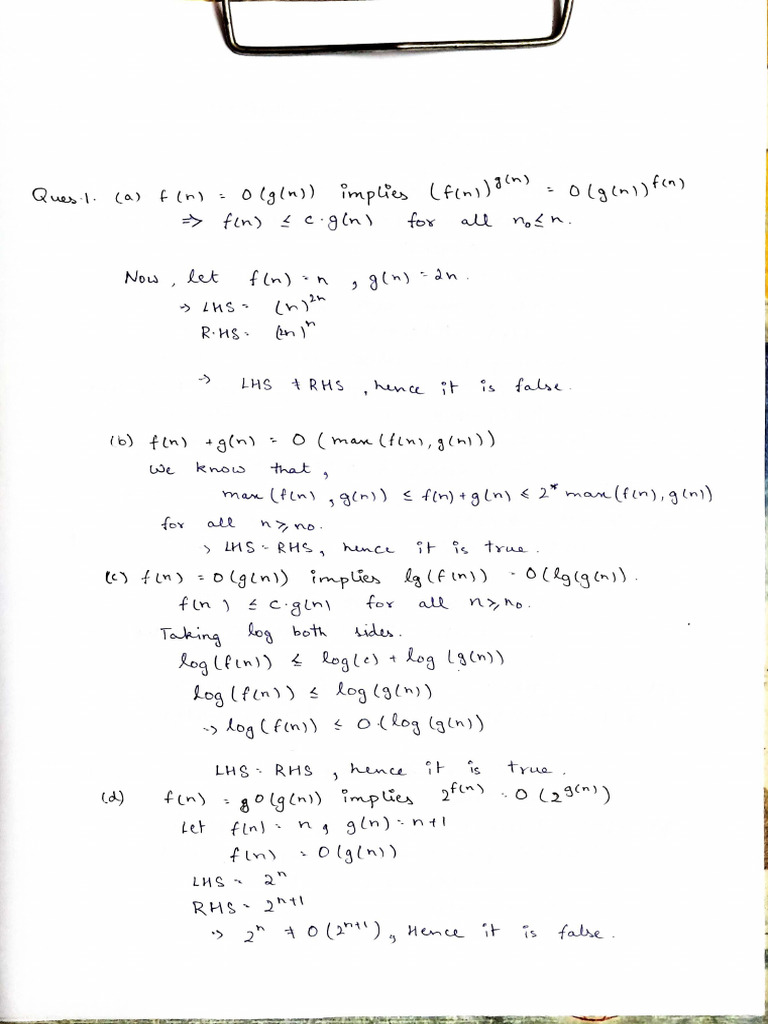 Ques.1. (a) f(n) = O(g(n)) implies (f(n))^g(n) = O(g(n))^f(n)
⇒ f(n) ≤ c·g(n) for all n₀≤n.
Now, let f(n) = n , g(n) = 2n.
→ LHS = (n)^2n
R.HS = (2n)^n
→ LHS ≠ RHS , hence it is false.
(b) f(n) + g(n) = O (max (f(n), g(n)))
We know that ,
max (f(n) , g(n)) ≤ f(n)+g(n) ≤ 2* max (f(n), g(n))
for all n≥n₀.
→ LHS = RHS, hence it is true.
(c) f(n) = O(g(n)) implies lg(f(n)) = O(lg(g(n)).
f(n) ≤ c·g(n) for all n≥n₀.
Taking log both sides.
log(f(n)) ≤ log(c) + log (g(n))
log(f(n)) ≤ log(g(n))
→ log(f(n)) ≤ O·(log(g(n))
LHS = RHS , hence it is true.
(d) f(n) = O(g(n)) implies 2^f(n) = O(2^g(n))
Let f(n) = n , g(n) = n+1
f(n) = O(g(n))
LHS = 2^n
RHS = 2^n+1
→ 2^n ≠ O(2^n+1), Hence it is false.